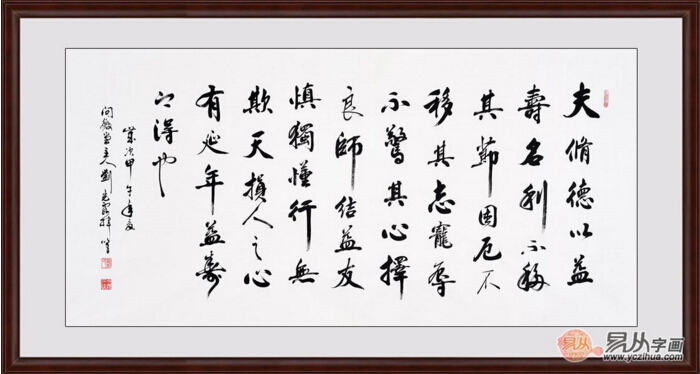 夫脩德以益
壽名利不移
其節困厄不
移其志寵辱
不驚其心擇
良師結益友
慎獨謹行無
欺天損人之心
有延年益壽
之得也
歲次甲午年夏
主人劉
易从
易从字画
www.yczihua.com